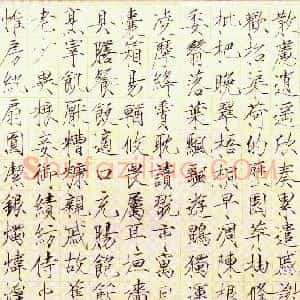 散慮逍遙欣奏累遣慼謝
歡招渠荷的歷園莽抽條
枇杷晚翠梧桐早凋陳根
委翳落葉飄颻遊鵾獨運
凌摩絳霄耽讀翫市寓目
囊箱易輶攸畏屬耳垣牆
具膳餐飯適口充腸飽飫
烹宰飢厭糟糠親戚故舊
老少異糧妾御績紡侍巾
帷房紈扇圓潔銀燭煒煌